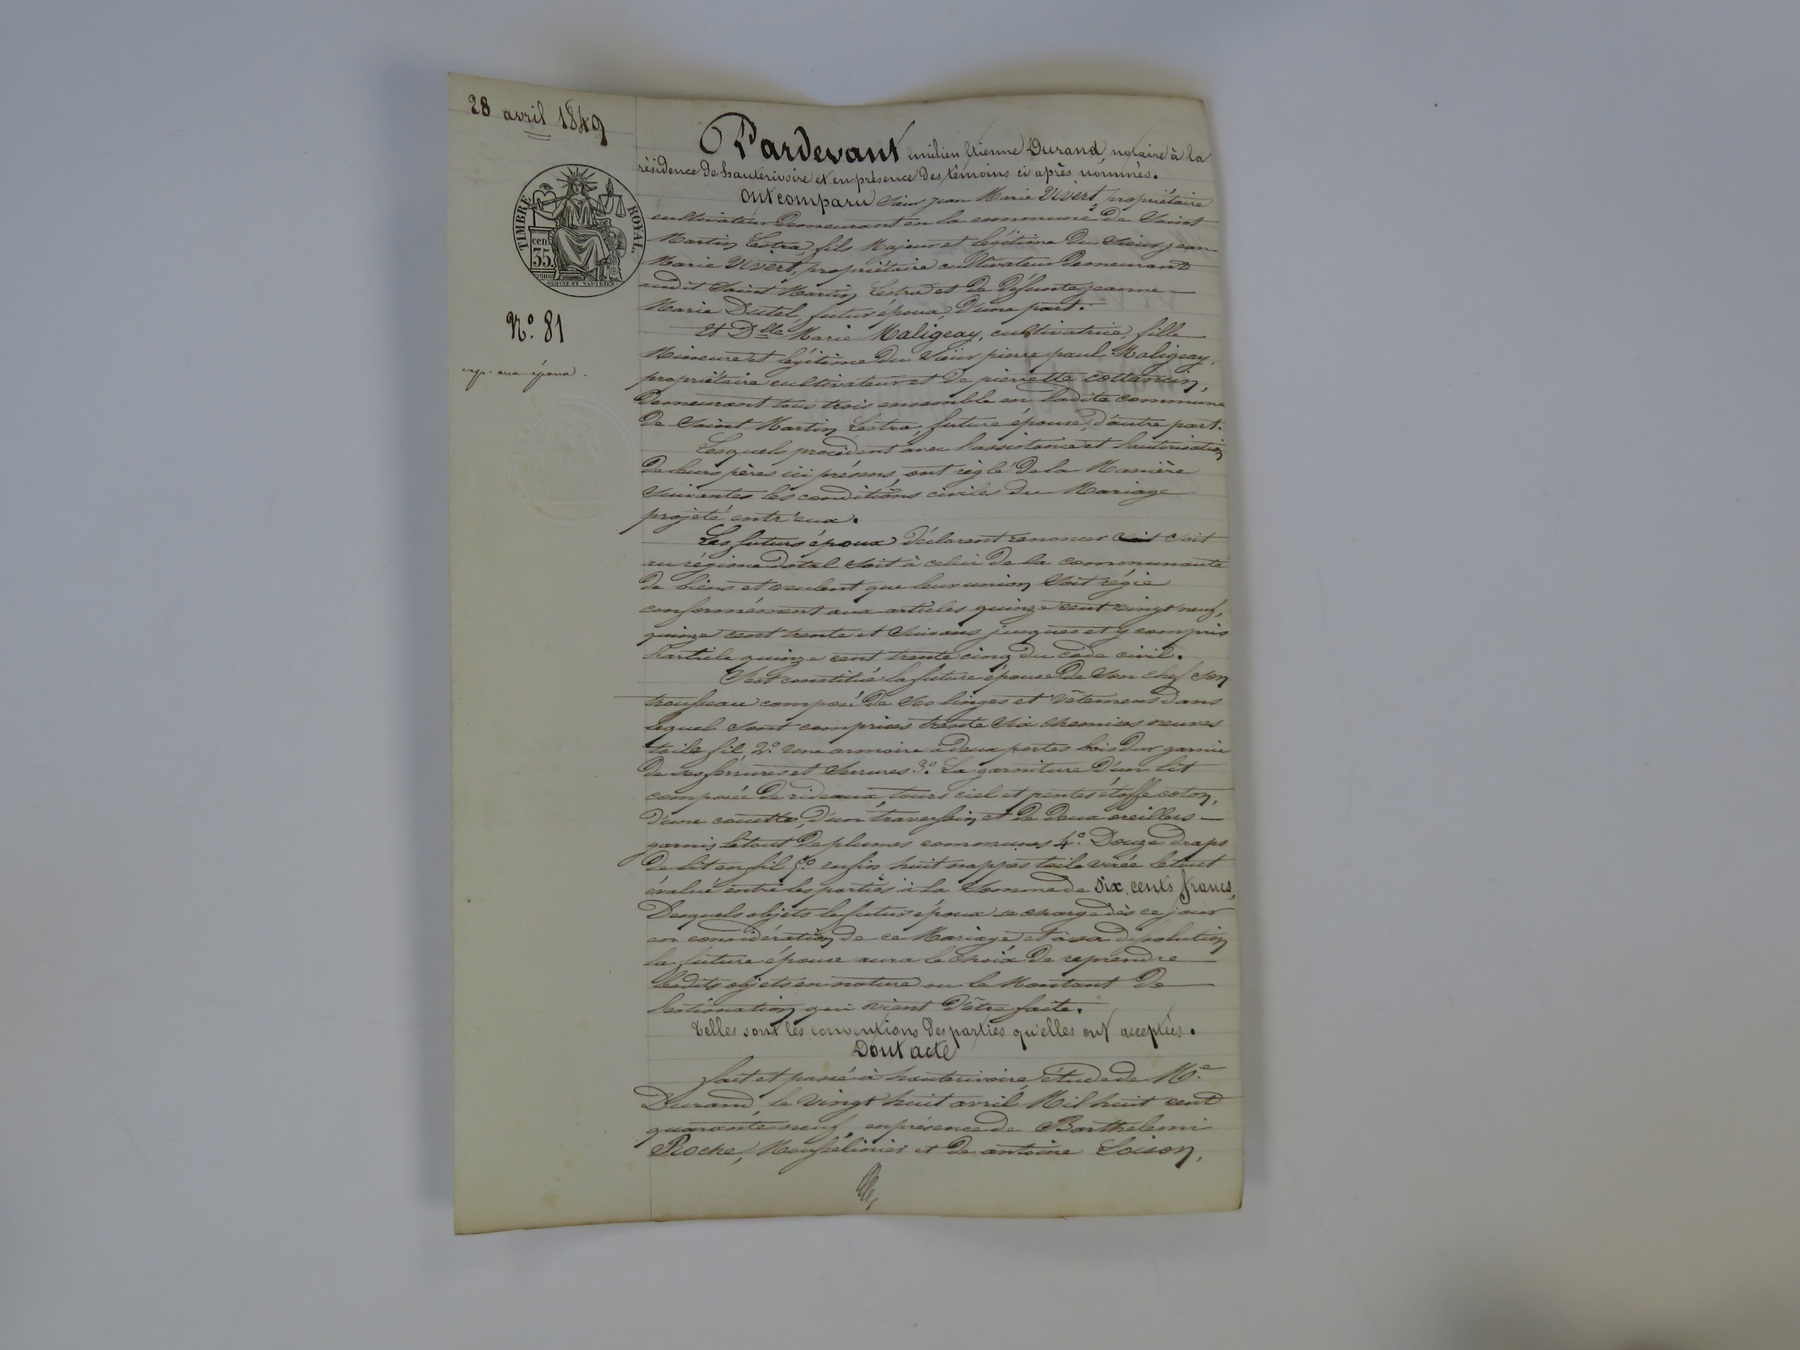 28 avril 1849
TIMBRE ROYAL
cen 35.
N.° 81
exp. aux époux.
Pardevant Emilien Etienne Durand, notaire à la
résidence de hauterivoire et en présence des témoins ci après nommés.
Ont comparu Sieur Jean Marie Vivert, propriétaire
cultivateur demeurant en la commune de Saint
Martin Lestra, fils Majeur et légitime du Sieur jean
Marie Vivert, propriétaire cultivateur demeurant
audit Saint Martin Lestra et de défunte jeanne
Marie Dutel, futur époux, d'une part.
Et Dlle Marie Maligeay, cultivatrice, fille
Mineure et légitime du Sieur pierre paul Maligeay,
propriétaire cultivateur et de pierrette cottancin,
demeurant tous trois ensemble en ladite commune
de Saint Martin Lestra, future épouse, d'autre part.
Lesquels procédant avec l'assistance et l'autorisation
de leurs pères ici présens, ont réglé de la Manière
Suivantes les conditions civiles du Mariage
projeté entr'eux.
Les futurs époux déclarent renoncer soit
au régime dotal soit à celui de la communauté
de biens et veulent que leur union soit régie
conformément aux articles quinze cent vingt neuf,
quinze cent trente et suivans jusques et y compris
l'article quinze cent trente cinq du code civil.
S'est constitué la future épouse de son chef son
trousseau composé de ses linges et vêtemens dans
lequel sont comprises trente six chemises neuves
toile fil 2° une armoire à deux portes bois dur garnie
de ses ferrures et serrures 3° La garniture d'un lit
composée de rideaux, tours ciel et pentes étoffe coton,
d'une couette, d'un traversin et de deux oreillers
garnis le tout de plumes communes 4° Douze draps
de lit en fil 5° enfin huit nappes toile virée le tout
évalué entre les parties à la somme de six cents francs,
Desquels objets le futur époux se charge dès ce jour
en considération de ce Mariage et à sa dissolution
la future épouse aura le choix de reprendre
lesdits objets en nature ou le Montant de
l'estimation qui vient d'être faite.
Telles sont les conventions des parties qu'elles ont acceptées.
Dont acte
fait et passé à hauterivoire, étude de Me
Durand, le vingt huit avril Mil huit cent
quarante neuf, en présence de Barthelemi
Roche, Mousselinier et de antoine Loison,